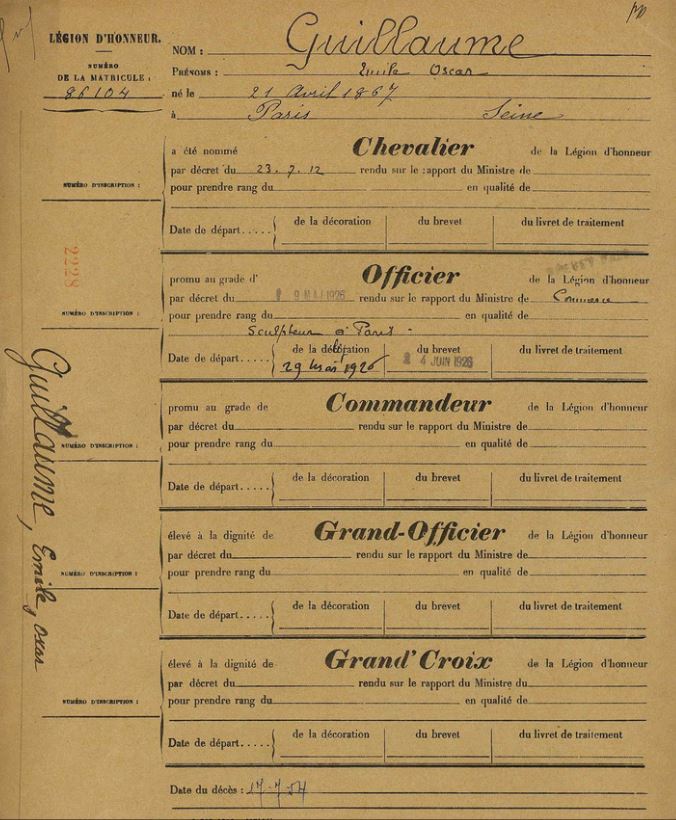 LÉGION D'HONNEUR.
NUMÉRO
DE LA MATRICULE :
86104
NOM : Guillaume
PRÉNOMS : Emile Oscar
né le 21 Avril 1867
à Paris Seine
a été nommé Chevalier de la Légion d'honneur
par décret du 23. 7. 12 rendu sur le rapport du Ministre de
NUMÉRO D'INSCRIPTION :
pour prendre rang du en qualité de
Date de départ..... de la décoration du brevet du livret de traitement
2228
promu au grade d' Officier de la Légion d'honneur
par décret du 9 MAI 1926 rendu sur le rapport du Ministre de Commerce
NUMÉRO D'INSCRIPTION :
pour prendre rang du en qualité de
Sculpteur à Paris -
Date de départ..... de la décoration du brevet du livret de traitement
29 mai 1926 4 JUIN 1926
promu au grade de Commandeur de la Légion d'honneur
par décret du rendu sur le rapport du Ministre de
NUMÉRO D'INSCRIPTION :
pour prendre rang du en qualité de
Date de départ..... de la décoration du brevet du livret de traitement
élevé à la dignité de Grand-Officier de la Légion d'honneur
par décret du rendu sur le rapport du Ministre de
NUMÉRO D'INSCRIPTION :
pour prendre rang du en qualité de
Date de départ..... de la décoration du brevet du livret de traitement
élevé à la dignité de Grand'Croix de la Légion d'honneur
par décret du rendu sur le rapport du Ministre du
NUMÉRO D'INSCRIPTION :
pour prendre rang du en qualité de
Date de départ..... de la décoration du brevet du livret de traitement
Date du décès : 17-7-54
Guillaume, Emile, Oscar